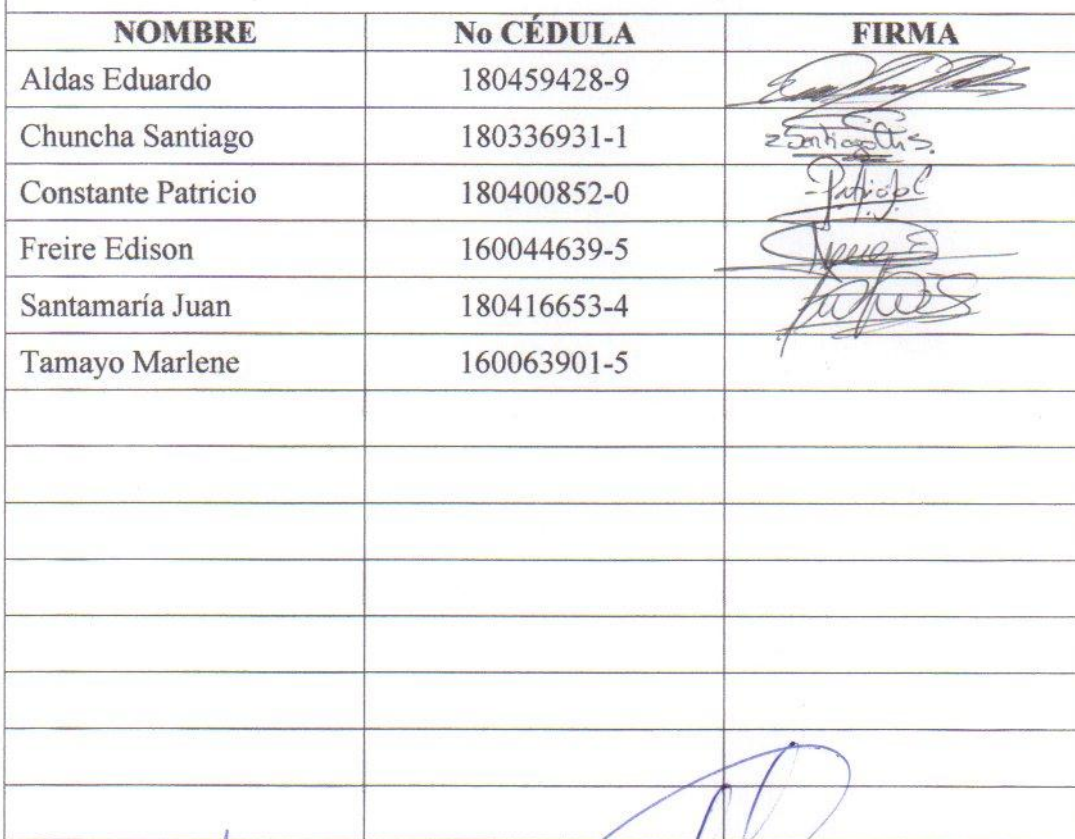 NOMBRE No CÉDULA FIRMA
Aldas Eduardo 180459428-9
Chuncha Santiago 180336931-1 Santiago Ch S.
Constante Patricio 180400852-0 Patricio C
Freire Edison 160044639-5
Santamaría Juan 180416653-4
Tamayo Marlene 160063901-5